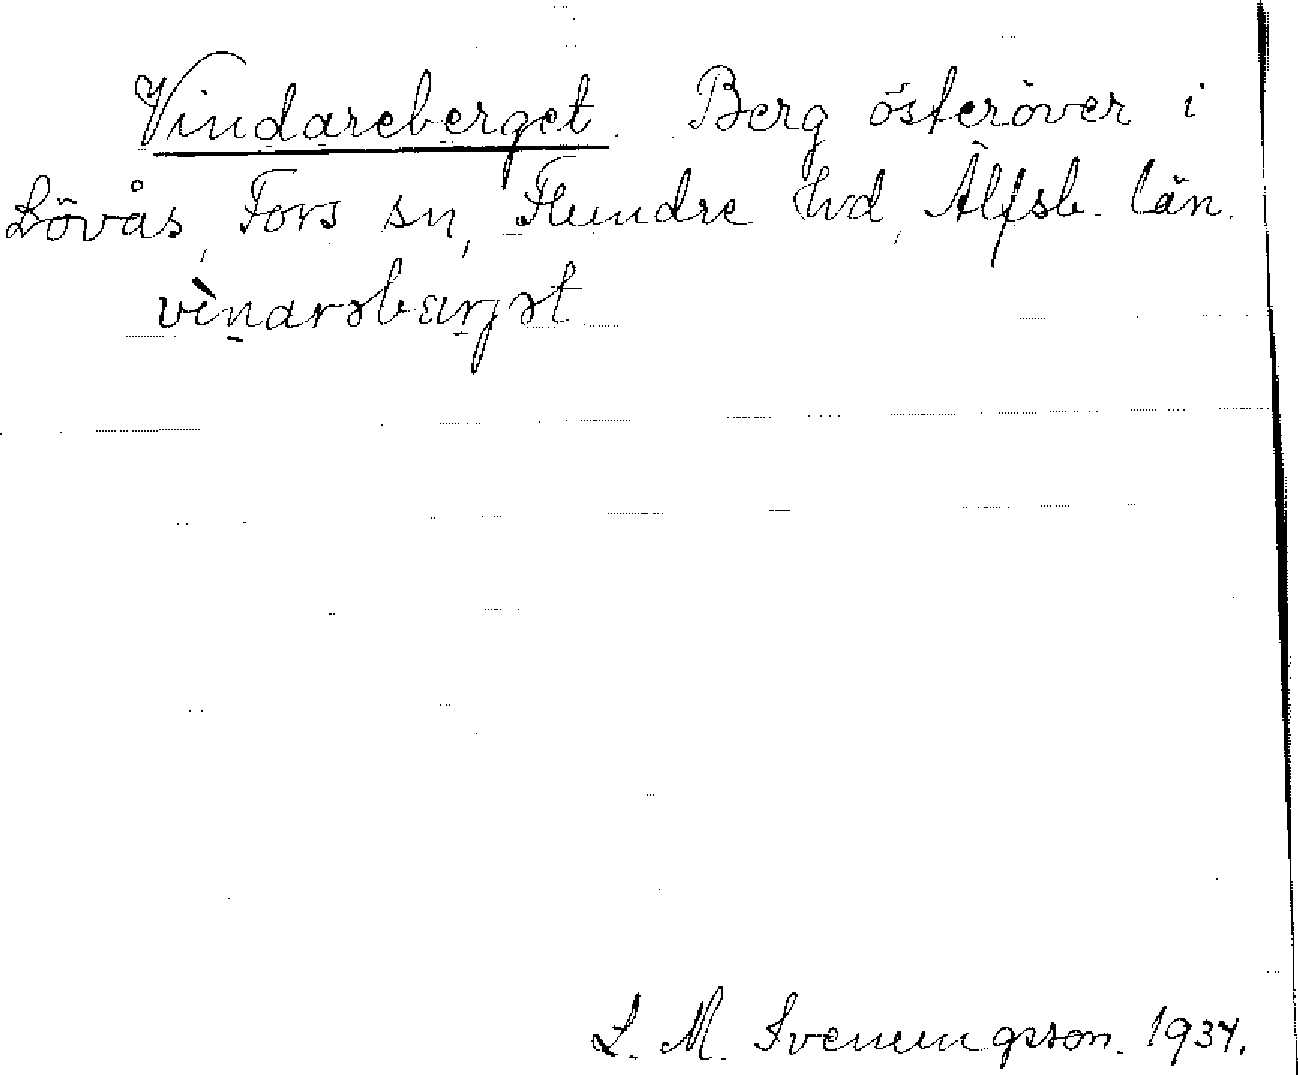 Vindareberget. Berg österöver i
Lövås, Fors sn, Flundre hd, Älfsb. län.
vìnarəbærjət
L. M. Svenungsson. 1934.